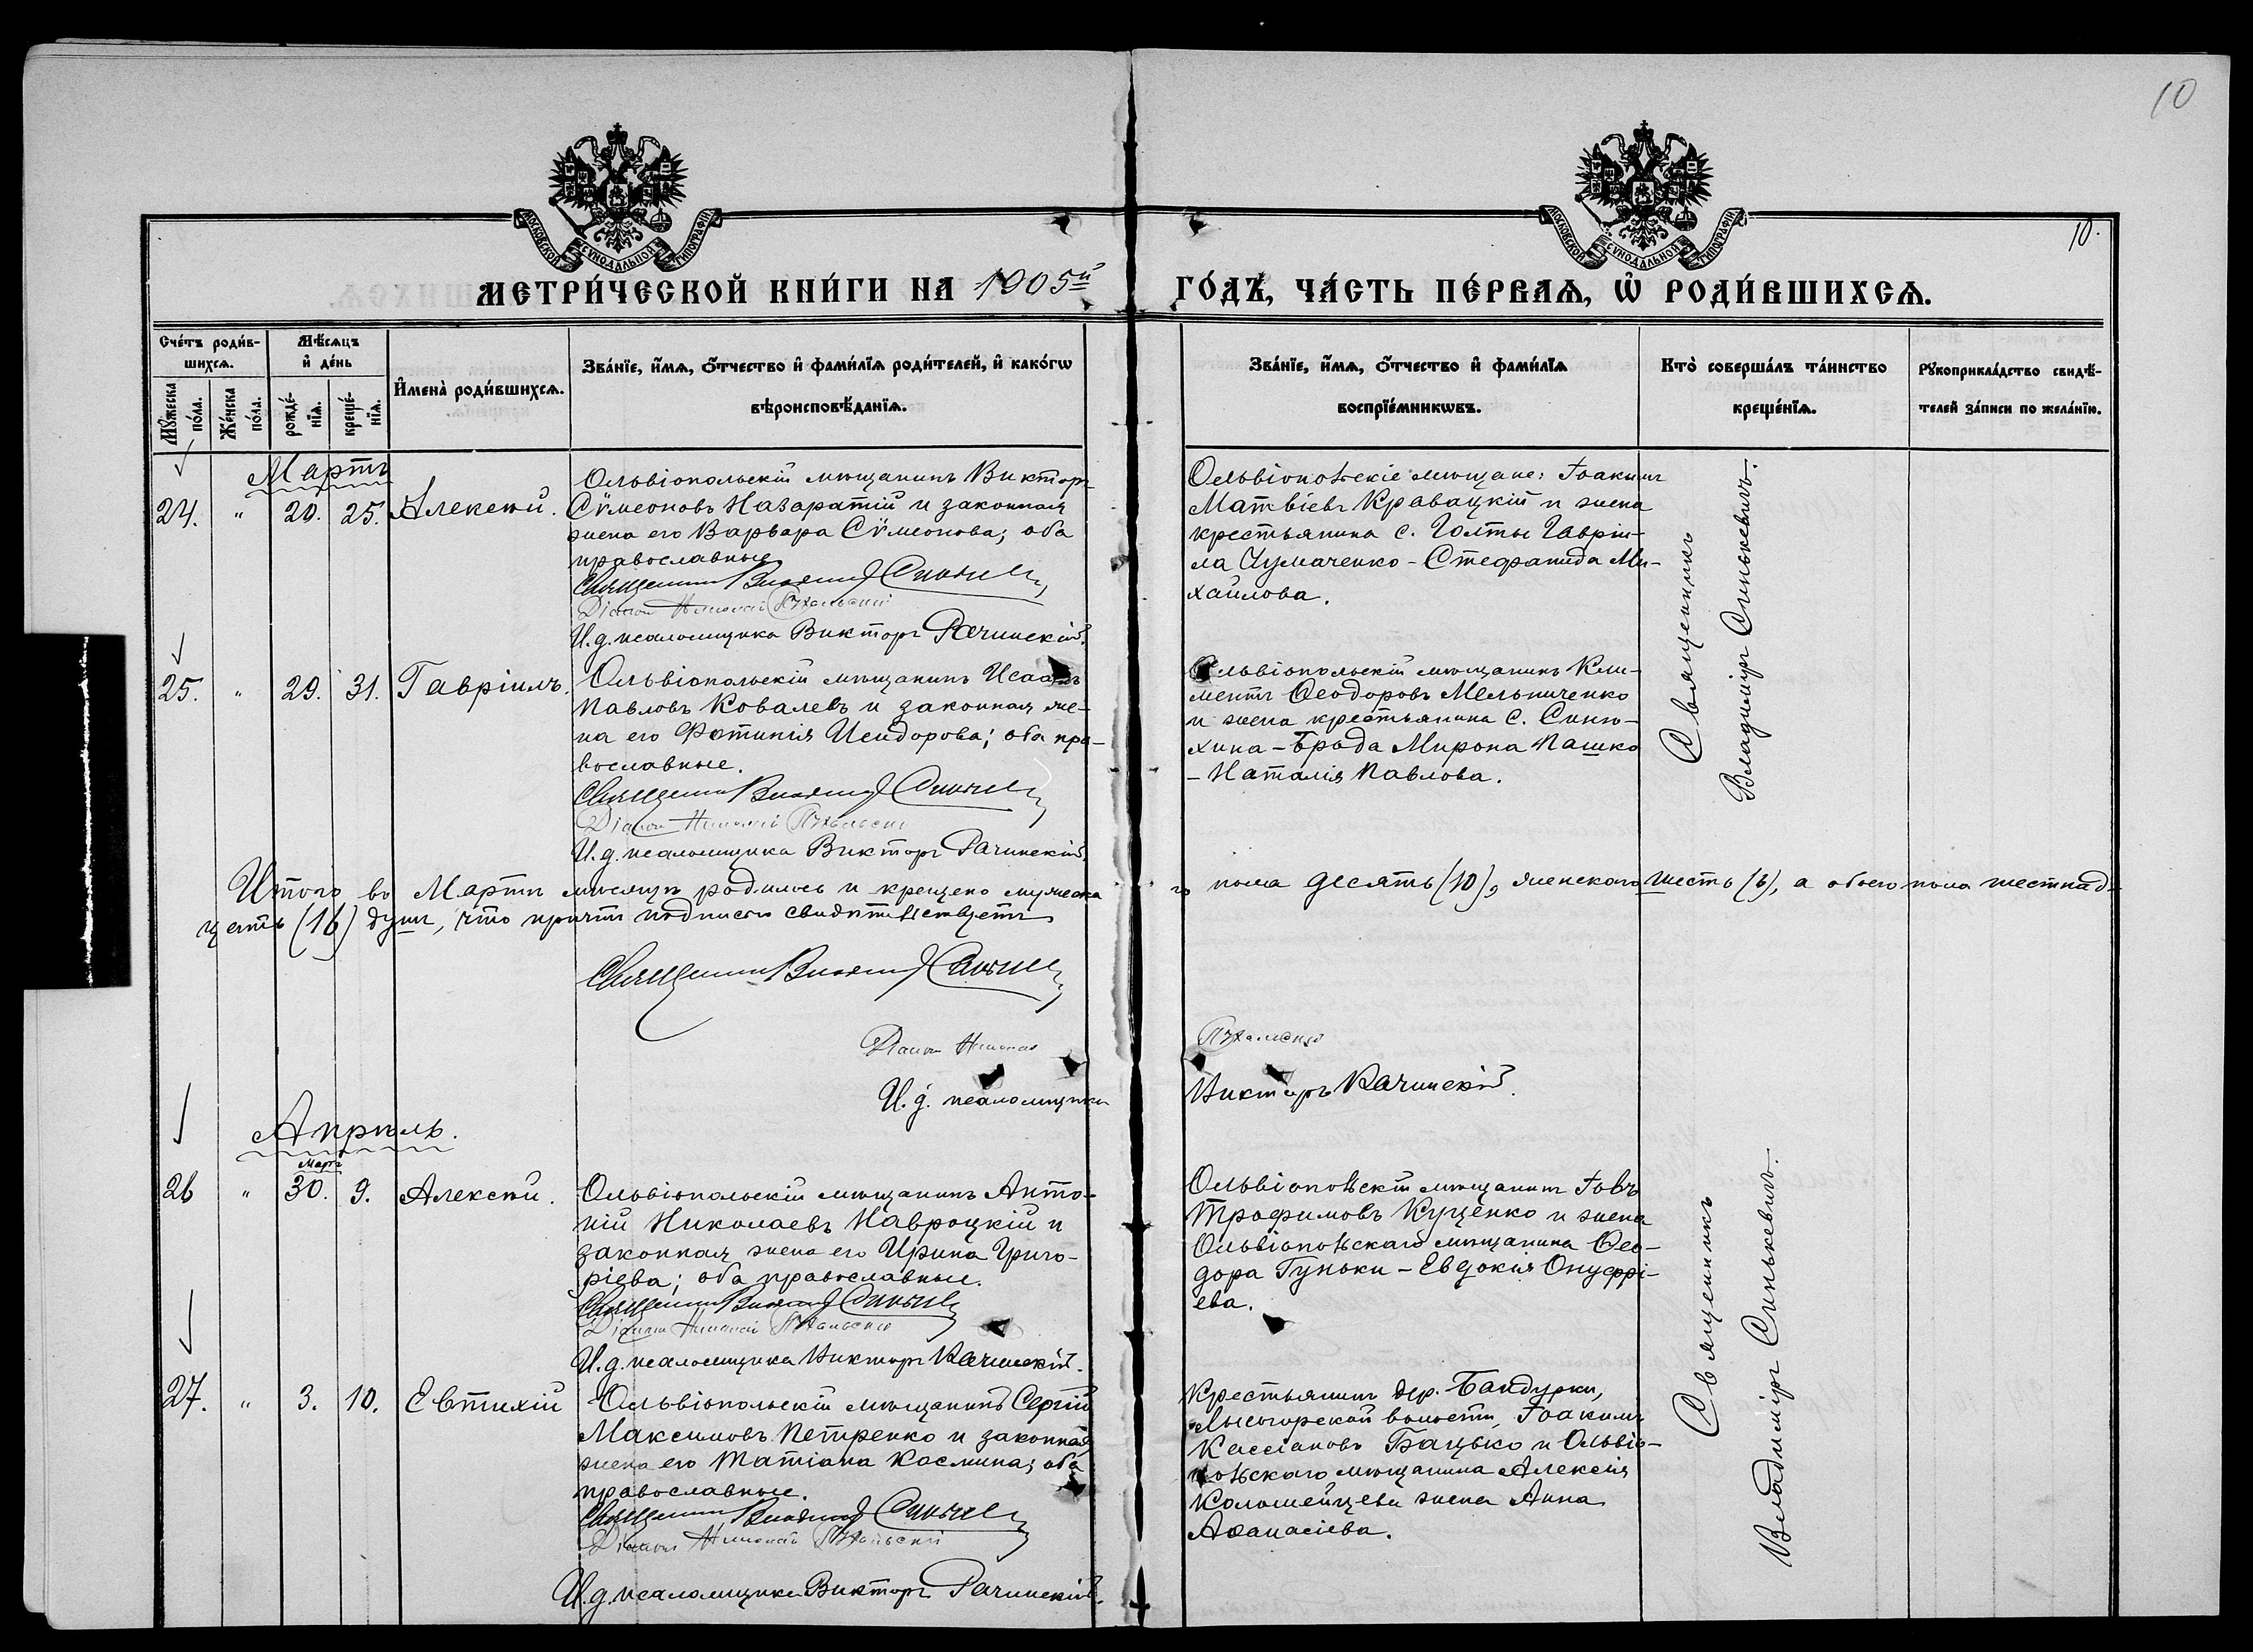 10
МОСКОВСКОЙ СУНОДАЛЬНОЙ ТИПОГРАФІИ
МОСКОВСКОЙ СУНОДАЛЬНОЙ ТИПОГРАФІИ
10.
МЕТРИ́ЧЕСКОЙ КНИ́ГИ НА 1905й
ГО́ДЪ, ЧА́СТЬ ПЕ́РВАѦ, Ѡ҆ РОДИ́ВШИХСѦ.
Сче́тъ роди́в-
шихсѧ.
Мꙋ́жеска по́ла.
Же́нска по́ла.
Мѣ́сѧцъ
и҆ де́нь
рожде́-
нїѧ.
креще́-
нїѧ.
И҆мена̀ роди́вшихсѧ.
Зва́нїе, и҆́мѧ, ѻ҆́тчество и҆ фами́лїѧ роди́телей, и҆ како́гѡ
вѣроисповѣ́данїѧ.
Зва́нїе, и҆́мѧ, ѻ҆́тчество и҆ фами́лїѧ
воспрїе́мникѡвъ.
Кто̀ соверша́лъ та́инство
креще́нїѧ.
Рꙋкоприкла́дство свидѣ́-
телей за́писи по жела́нїю.
Мартъ
24. " 20. 25. Алексѣй.
Ольвіопольскій мѣщанинъ Викторъ
Сѵмеоновъ Назаратій и законная
жена его Варвара Сѵмеонова; оба
православные
Священникъ Владиміръ Синькевичъ
Діаконъ Николай
И.д. псаломщика Викторъ Рачинскій.
Ольвіопольскіе мѣщане: Іоакимъ
Матвіевъ Кравацкій и жена
крестьянина с. Голты Гаврiи-
ла Чумаченко - Стефанида Ми-
хайлова.
Священникъ
Владиміръ Синькевичъ.
25. " 29. 31. Гавріилъ.
Ольвіопольскій мѣщанинъ Исаакъ
Павловъ Ковалевъ и законная же-
на его Фотинія Исидорова; оба пра-
вославные.
Священникъ Владиміръ Синькевичъ
Діаконъ Николай
И.д. псаломщика Викторъ Рачинскій.
Ольвіопольскій мѣщанинъ Кли-
ментъ Ѳеодоровъ Мельниченко
и жена крестьянина с. Синю-
хина-Брода Мирона Пашко
- Наталія Павлова.
Итого въ Мартѣ мѣсяцѣ родилось и крещено мужеска
го пола десять (10), женскаго шесть (6), а обоего пола шестнад-
цать (16) душъ, что причтъ подписью свидѣтельствуетъ
Священникъ Владиміръ Синькевичъ
Діаконъ Николай
И.д. псаломщика
Викторъ Рачинскій.
Апрѣль.
Марта
26 " 30. 9. Алексѣй.
Ольвіопольскій мѣщанинъ Анто-
ній Николаевъ Навроцкій и
законная жена его Ирина Григо-
ріева; оба православные.
Священникъ Владиміръ Синькевичъ
Діаконъ Николай
И.д. псаломщика Викторъ Рачинскій.
Ольвіопольскій мѣщанинъ Іовъ
Трофимовъ Куценко и жена
Ольвіопольскаго мѣщанина Ѳео-
дора Гуньки - Евдокія Онуфрі-
ева.
Священникъ
Владиміръ Синькевичъ.
27. " 3. 10. Евтихій
Ольвіопольскій мѣщанинъ Сергій
Максимовъ Петренко и законная
жена его Татіана Косьмина; оба
православные.
Священникъ Владиміръ Синькевичъ
Діаконъ Николай
И.д. псаломщика Викторъ Рачинскій.
Крестьянинъ дер. Бандурки,
Лысогорской волости, Іоакимъ
Кассіановъ Бацько и Ольвіо-
польскаго мѣщанина Алексія
Коломейцева жена Анна
Аѳанасіева.